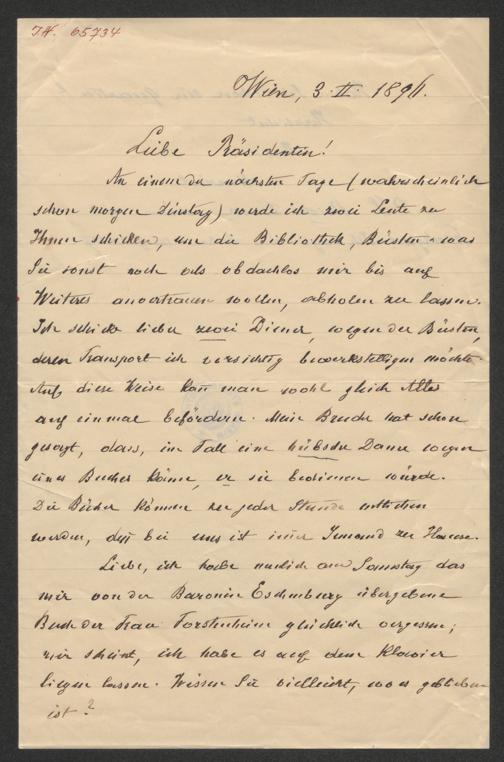 I.N. 65734
Wien, 3. II. 1891.
Liebe Präsidentin!
An einem der nächsten Tage (wahrscheinlich
schon morgen Dinstag) werde ich zwei Leute zu
Ihnen schicken, um die Bibliothek, Büsten u. was
Sie sonst noch als obdachlos mir bis auf
Weiteres anvertrauen wollen, abholen zu lassen.
Ich schicke lieber zwei Diener, wegen der Büsten,
deren Transport ich vorsichtig bewerkstelligen möchte.
Auf diese Weise kan man wohl gleich Alles
auf einmal befördern. Mein Bruder hat schon
gesagt, dass, im Fall eine hübsche Dame wegen
eines Buches käme, er sie bedienen würde.
Die Bücher können zu jeder Stunde entliehen
werden, den bei uns ist immer Jemand zu Hause.
Liebe, ich habe neulich am Samstag das
mir von der Baronin Eschenburg übergebene
Buch der Frau Forstenheim glücklich vergessen;
mir scheint, ich habe es auf dem Klavier
liegen lassen. Wissen Sie vielleicht, wo es geblieben
ist?